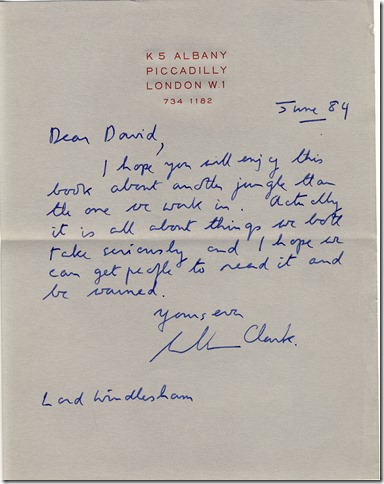 K5 ALBANY
PICCADILLY
LONDON W.1
734 1182
June 84
Dear David,
I hope you will enjoy this
book about another jungle than
the one we work in. Actually
it is all about things we both
take seriously and I hope we
can get people to read it and
be warned.
Yours ever
Clark.
Lord Windlesham